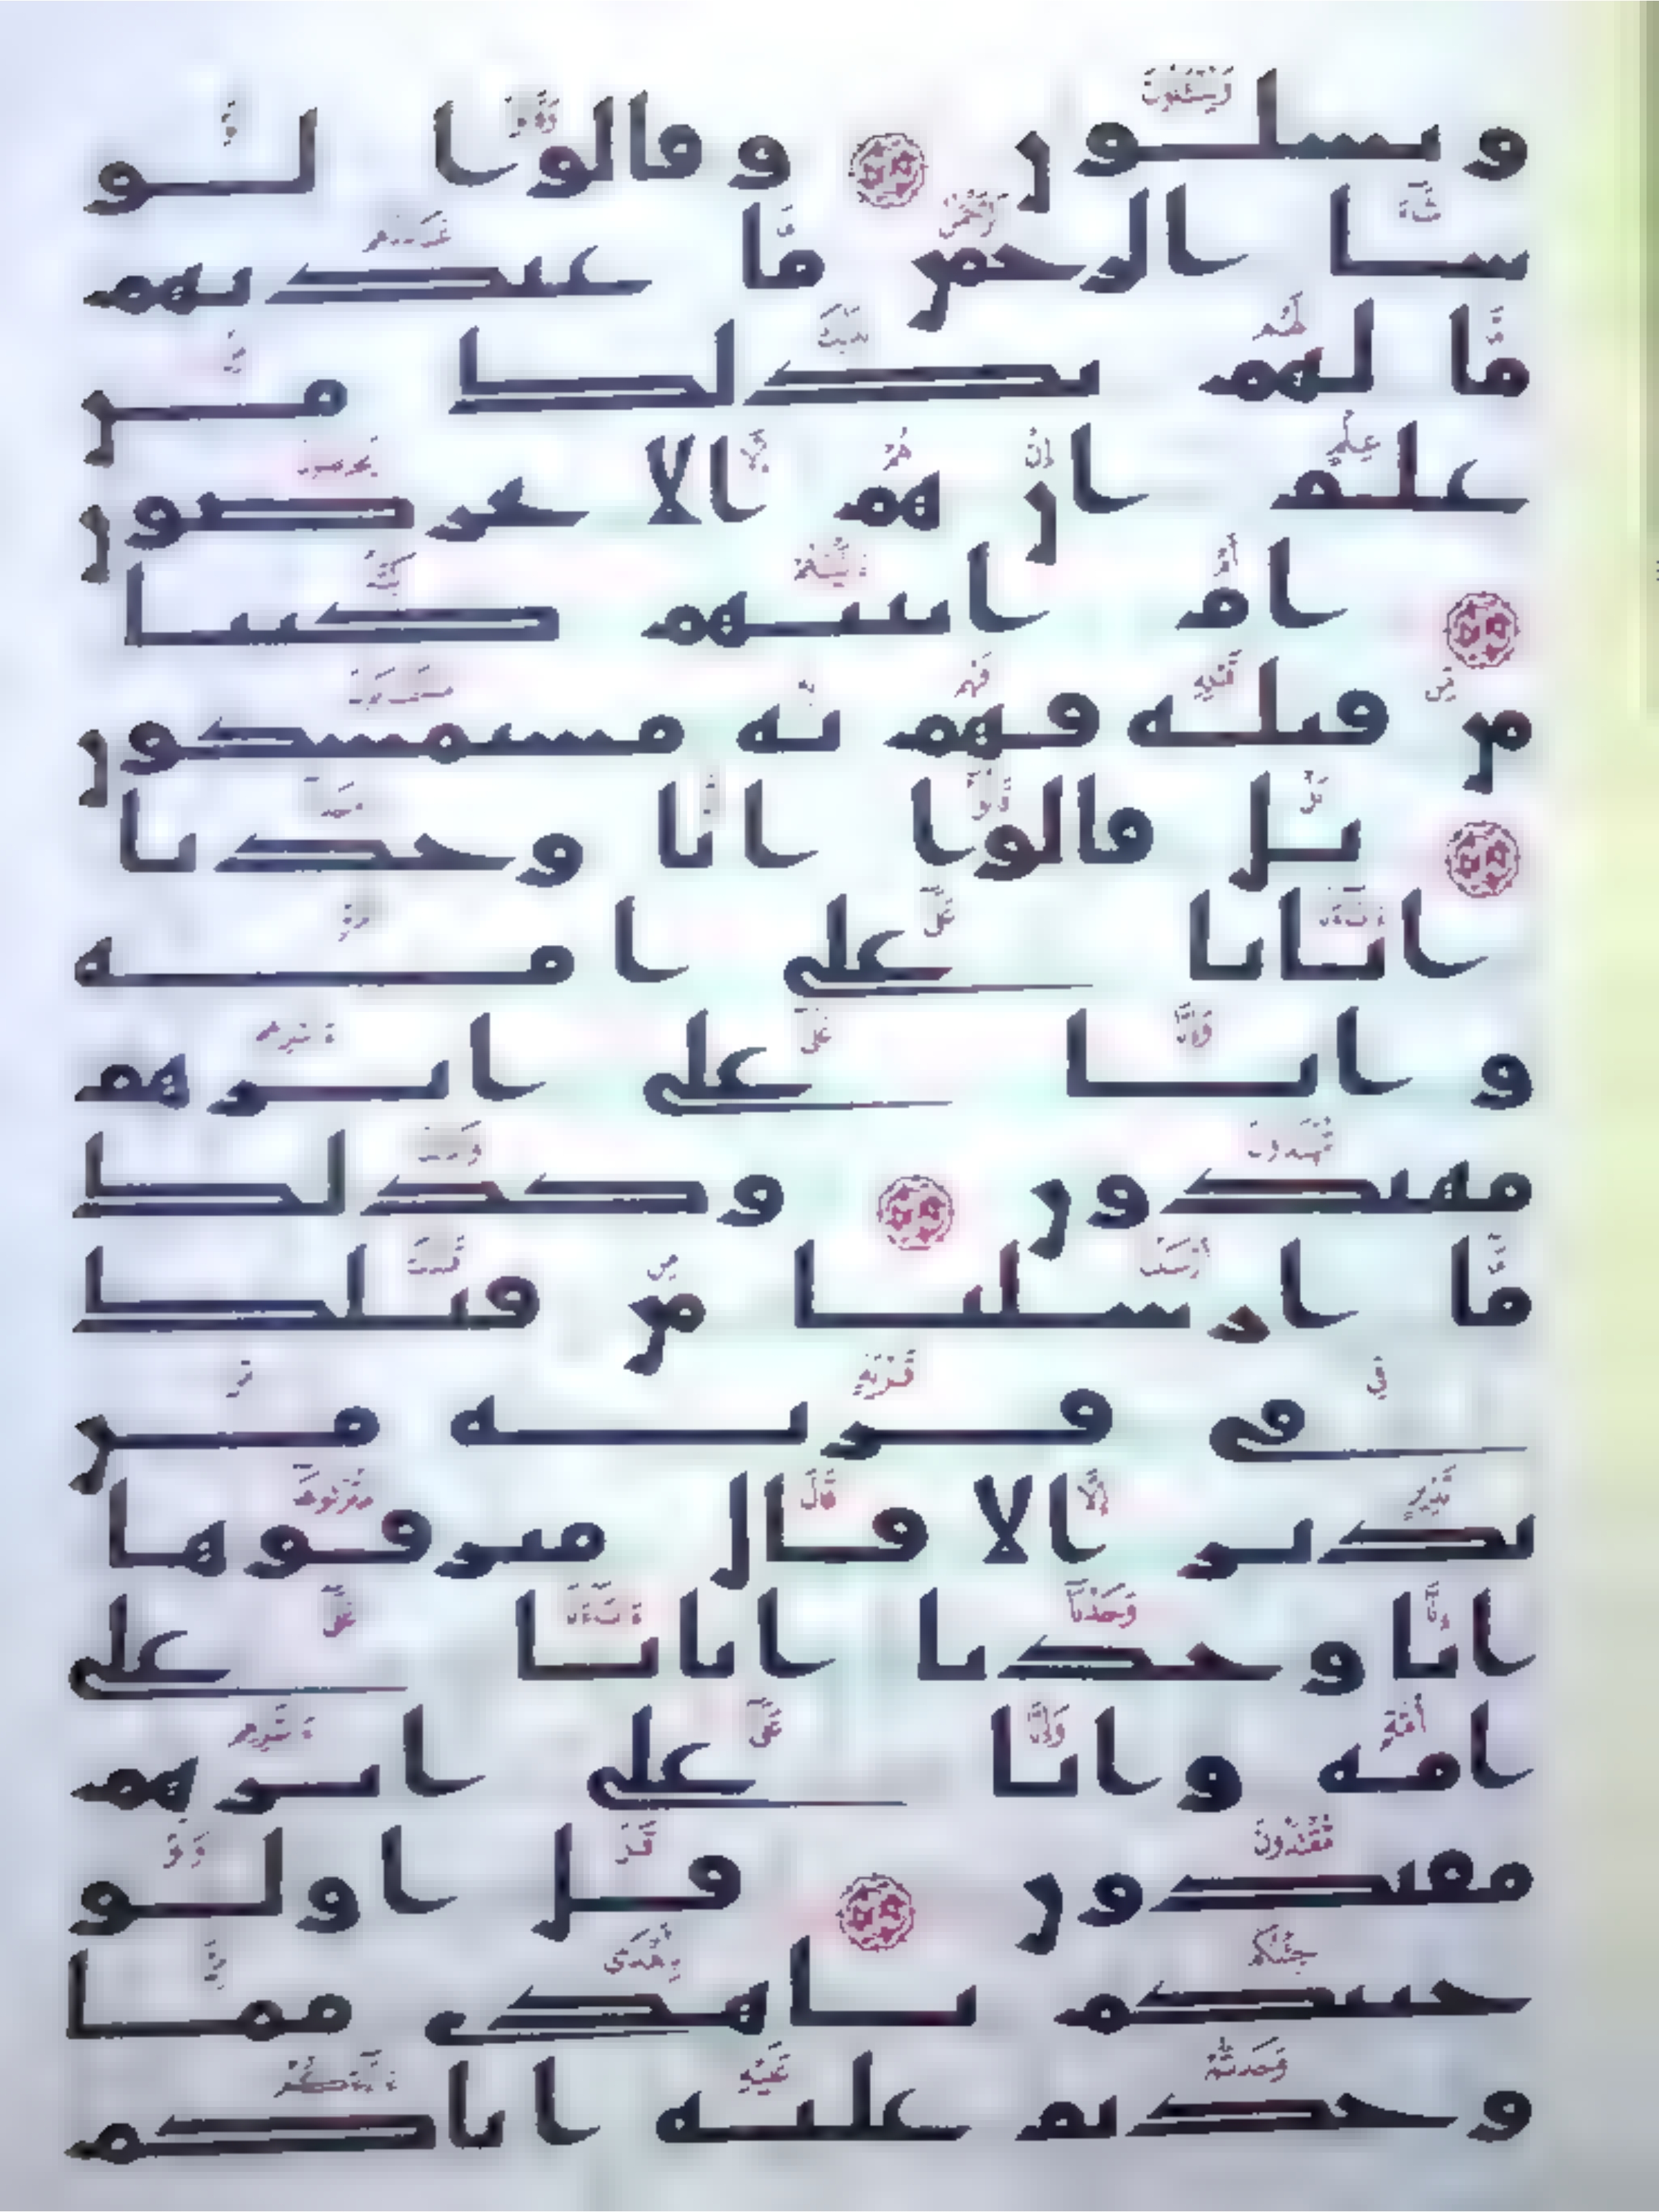 ويسلون وقالوا لو
شا الرحمن ما عبدنهم
ما لهم بذلك من
علم ان هم الا يخرصون
ام اتينهم كتبا
من قبله فهم به مستمسكون
بل قالوا انا وجدنا
ابانا على امه
وانا على اثرهم
مهتدون وكذلك
ما ارسلنا من قبلك
في قريه من
نذير الا قال مترفوها
انا وجدنا ابانا على
امه وانا على اثرهم
مقتدون قل اولو
جيتكم باهدى مما
وجدتم عليه اباكم